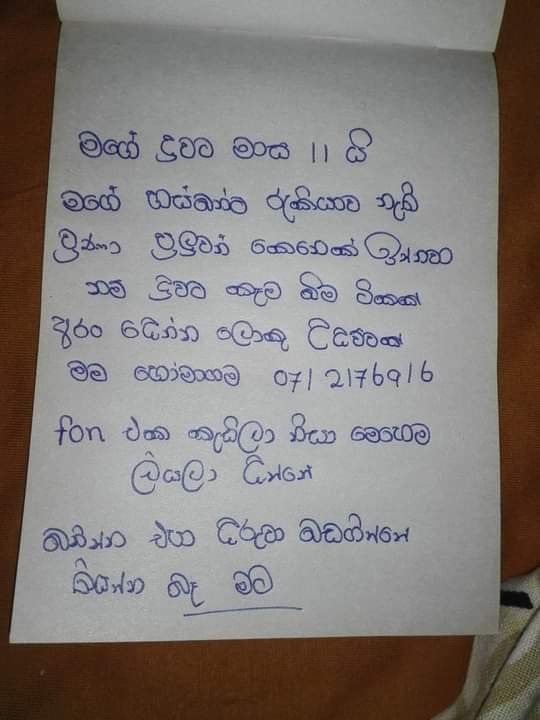 මගේ දුවට මාස 11 යි
මගේ හස්බන්ට රැකියාව නැති
වුණා පුලුවන් කෙනෙක් ඉන්නවා
නම් දුවට කෑම බීම ටිකක්
අරං දෙන්න ලොකු උදව්වක්
මම හෝමාගම 071 2176916
fon එක කැඩිලා නිසා මෙහෙම
ලියලා දාන්නේ
බනින්න එපා දරුවා බඩගින්නේ
තියන්න බෑ මට